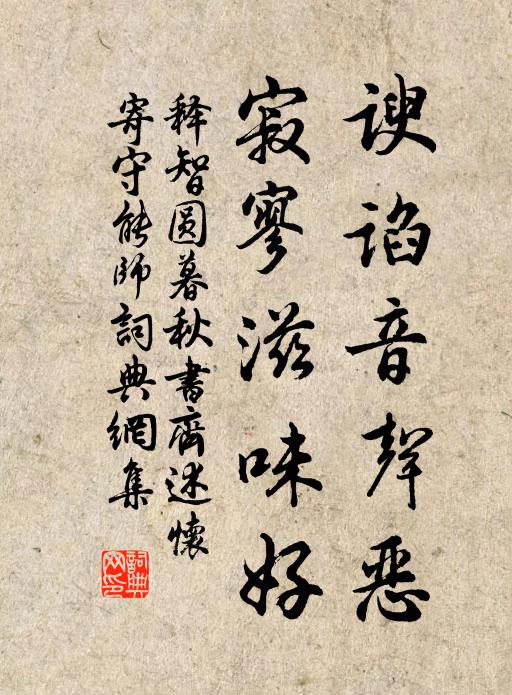 谀谄音聲恶
寂寥滋味好
释智圆暮秋書齊述懷
寄守能師詞典網集
詞典
网印